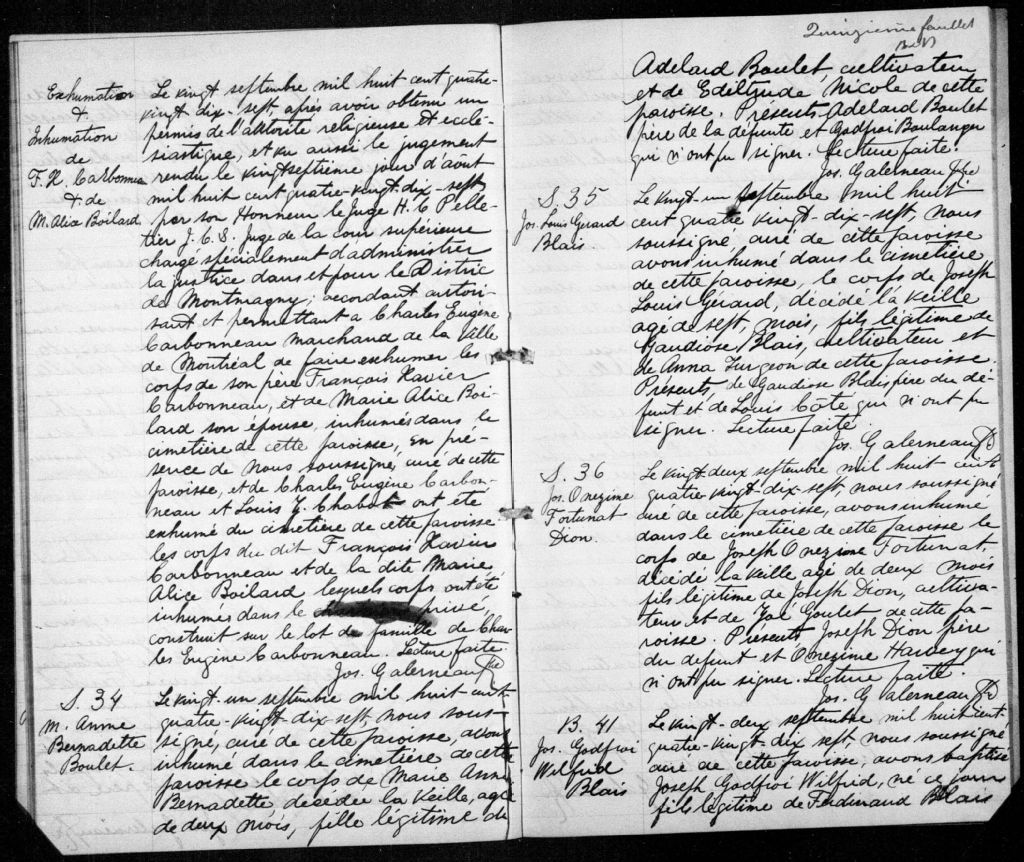 Exhumation
&
Inhumation
de
F. X. Carbonneau
& de
M. Alice Boilard
Le vingt septembre mil huit cent quatre-
vingt-dix-sept, après avoir obtenu un
permis de l'autorité religieuse et ecclé-
siastique, et vu aussi le jugement
rendu le vingt septième jour d'août
mil huit cent quatre-vingt-dix-sept
par son Honneur le Juge H. C Pelle-
tier J. C. S. Juge de la cour supérieure
chargé spécialement d'administrer
la justice dans et pour le District
de Montmagny; accordant autori-
sant et permettant à Charles Eugène
Carbonneau marchand de la Ville
de Montréal de faire exhumer les
corps de son père François Xavier
Carbonneau, et de Marie Alice Boi-
lard son épouse, inhumés dans le
cimetière de cette paroisse, en pré-
sence de nous soussigné, curé de cette
paroisse, et de Charles Eugène Carbon-
neau et Louis Z. Chabot ont été
exhumé du cimetière de cette paroisse
les corps du dit François Xavier
Carbonneau et de la dite Marie
Alice Boilard lesquels corps ont été
inhumés dans le privé,
construit sur le lot de famille de Char-
les Eugène Carbonneau. Lecture faite.
Jos. Galerneau Ptre
S. 34
M. Anne
Bernadette
Boulet.
Le vingt-un septembre mil huit cent
quatre-vingt-dix sept, nous sous-
signé, curé de cette paroisse, avons
inhumé dans le cimetière de cette
paroisse le corps de Marie Anne
Bernadette décédée la veille, agée
de deux mois, fille légitime de
Quinzième feuillet
Adelard Boulet, cultivateur
et de Edeltrude Nicole de cette
paroisse. Présents Adelard Boulet
père de la défunte et Godfroi Boulanger
qui n'ont pu signer. Lecture faite.
Jos. Galerneau Ptre
S. 35
Jos. Louis Gerard
Blais
Le vingt-un septembre mil huit
cent quatre vingt-dix-sept, nous
soussigné, curé de cette paroisse
avons inhumé dans le cimetière
de cette paroisse, le corps de Joseph
Louis Gérard, décédé la veille
agé de sept mois, fils légitime de
Gaudiose Blais, cultivateur et
de Anna Turgeon de cette paroisse.
Présents, de Gaudiose Blais père du dé-
funt et de Louis Côté qui n'ont pu
signer. Lecture faite.
Jos. Galerneau Ptre
S. 36
Jos. Onezime
Fortunat
Dion.
Le vingt-deux septembre mil huit cent
quatre-vingt-dix-sept, nous soussigné
curé de cette paroisse, avons inhumé
dans le cimetière de cette paroisse le
corps de Joseph Onezime Fortunat,
décédé la veille agé de deux mois
fils légitime de Joseph Dion, cultiva-
teur et de Zoé Goulet de cette pa-
roisse. Présents Joseph Dion père
du defunt et Onezime Harvey qui
n'ont pu signer. Lecture faite.
Jos. Galerneau Ptre
B. 41
Jos. Godfroi
Wilfrid
Blais
Le vingt-deux septembre mil huit cent
quatre-vingt-dix sept, nous soussigné
curé de cette paroisse, avons baptisé
Joseph Godfroi Wilfrid, né ce jour
fils légitime de Ferdinand Blais